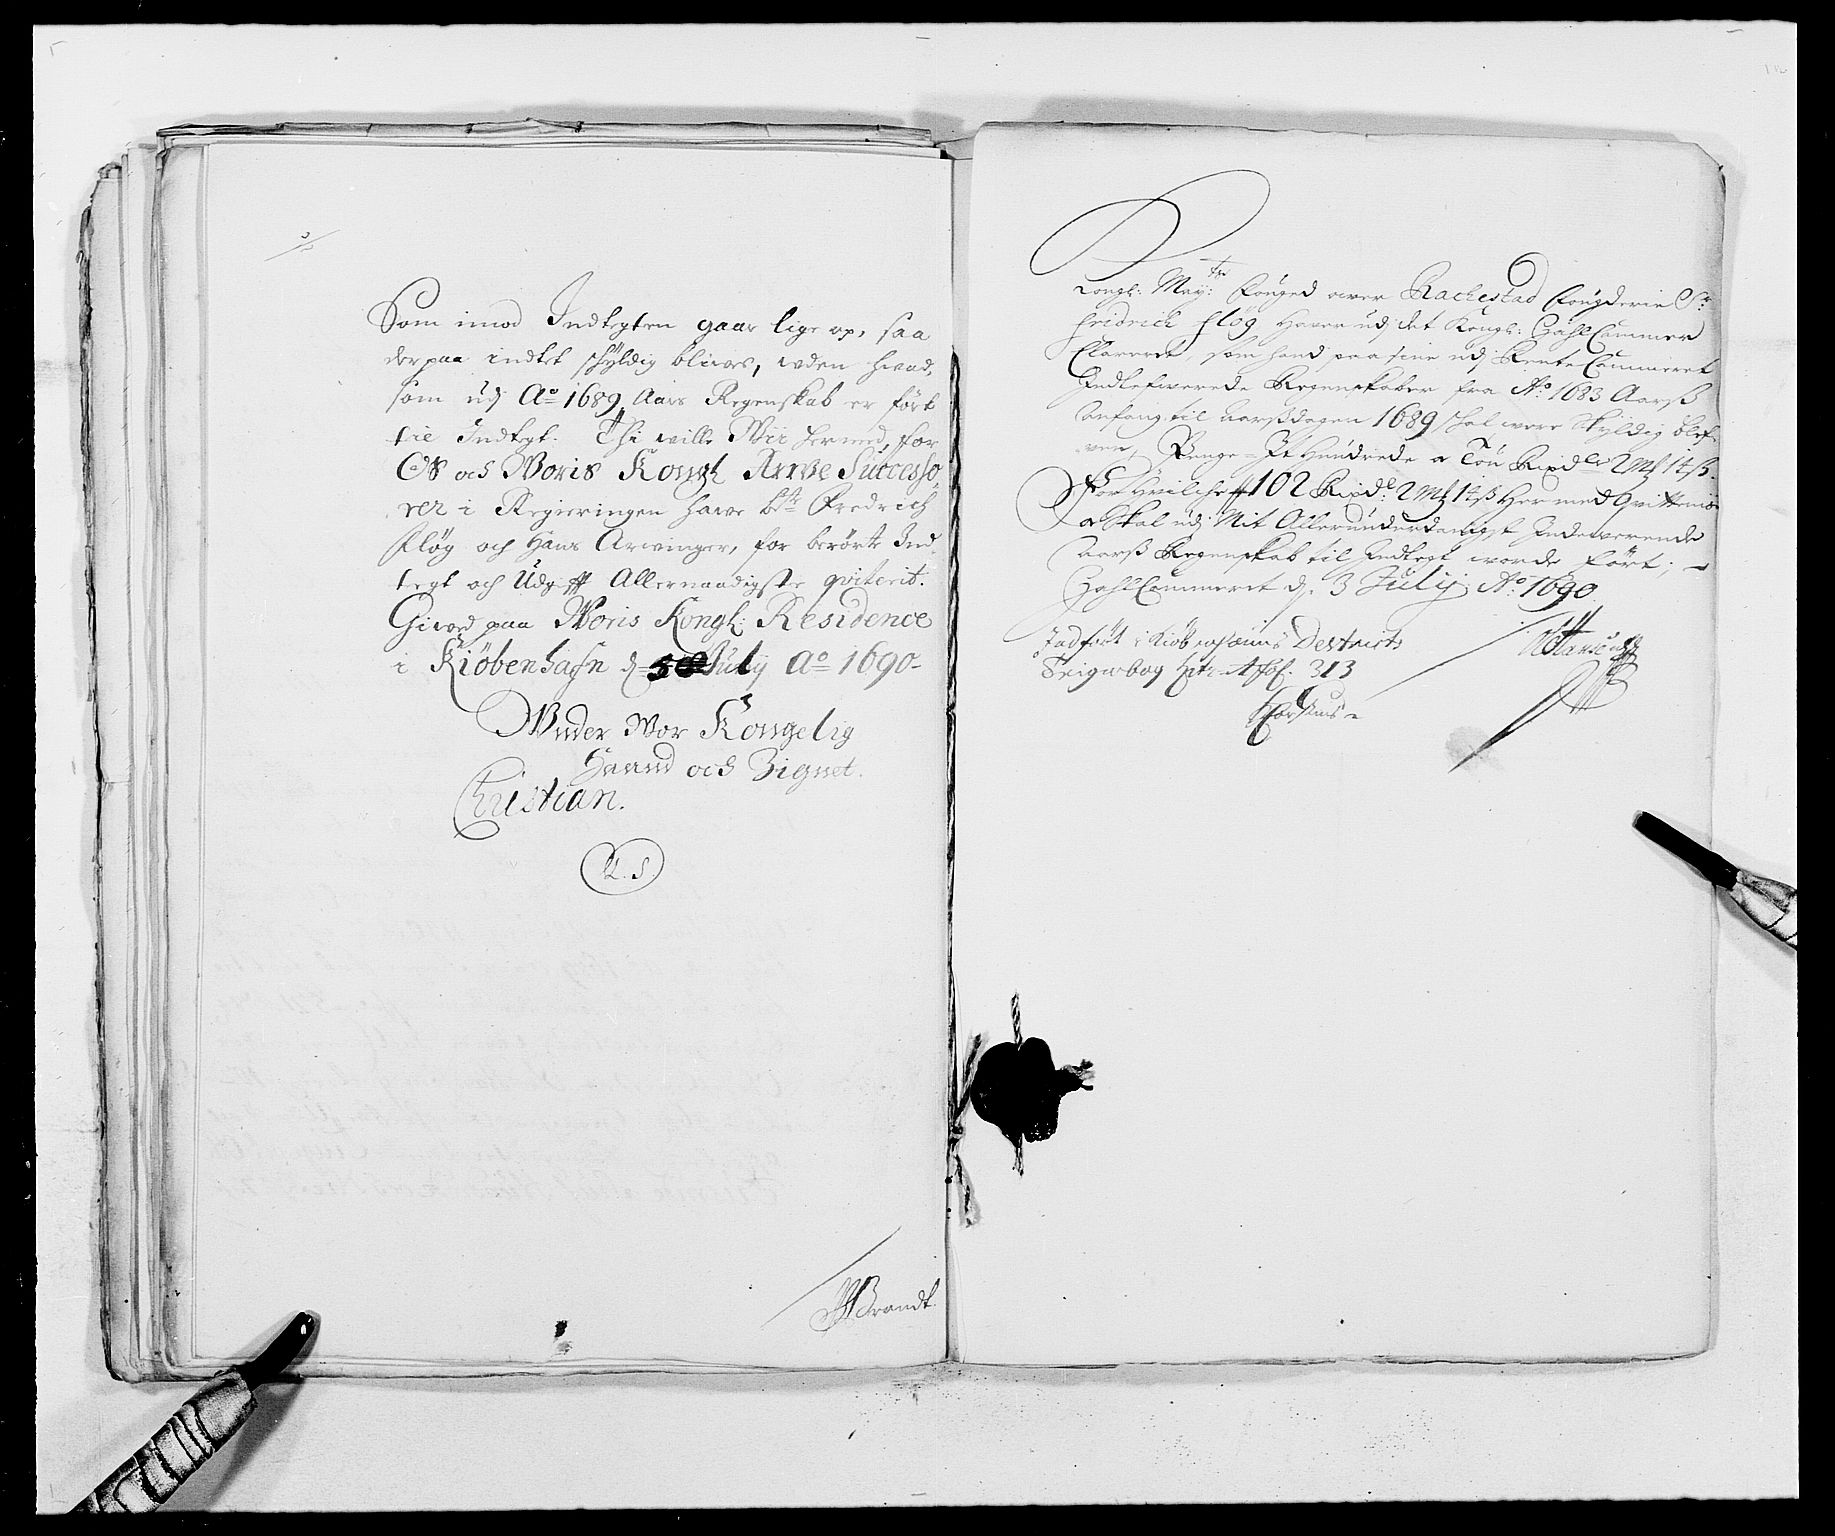 Som imod Indtegten gaar lige op, saa
der paa indtet schyldig blives, uden hvad,
som udj Ao 1689 Aars Regenskab er ført
til Indtegt. Thi wille Wii hermed, for
OS och Woris Kongl Arve Successo,
rer i Regieringen have bte Fredrich
Fløg och Hans Arvinger, for berørte Ind,
tegt och Udgifft Allernaadigste qviterit.
Givet paa Woris Kongl: Residence
i Kiøbenhafn d July Ao 1690-
Under Wor Kongelig
Haand och Zignet.
Christian.
L. S.
Brandt.
Kongl: Mayts: Fouged over Rackestad Fougderie Sr
Fridrich Fløg Haver udj det Kongl: Zahl Cammer
Clareret, som hand paa sine udj Rente Cammeret
Indlefwerede Regenskaber fra Ao 1683 Aars
Anfang til aarsdagen 1689 skal were Skyldig blef,
ven, Penge - Et Hundrede oc Tou Rixdlr 2 mk 14 s
For Hvilche 102 Rixdl 2 mk 14 s Hermed Qvitteris
oc Skal udj Mit Allerunderdanigst Indeverende
Aars Regenskab til Indtegt worde ført; -
Zahl Cammeret d. 3 July Ao 1690
Indført i Kiøbenhafns Destricts
313